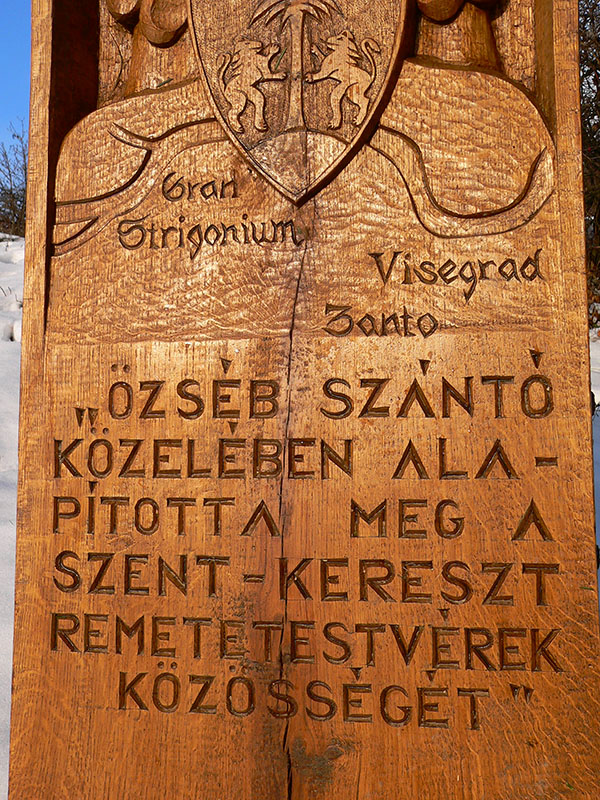 Gran
Strigonium
Visegrad
Zanto
„ÖZSÉB SZÁNTÓ
KÖZELÉBEN ALA-
PÍTOTTA MEG A
SZENT-KERESZT
REMETETESTVÉREK
KÖZÖSSÉGÉT"